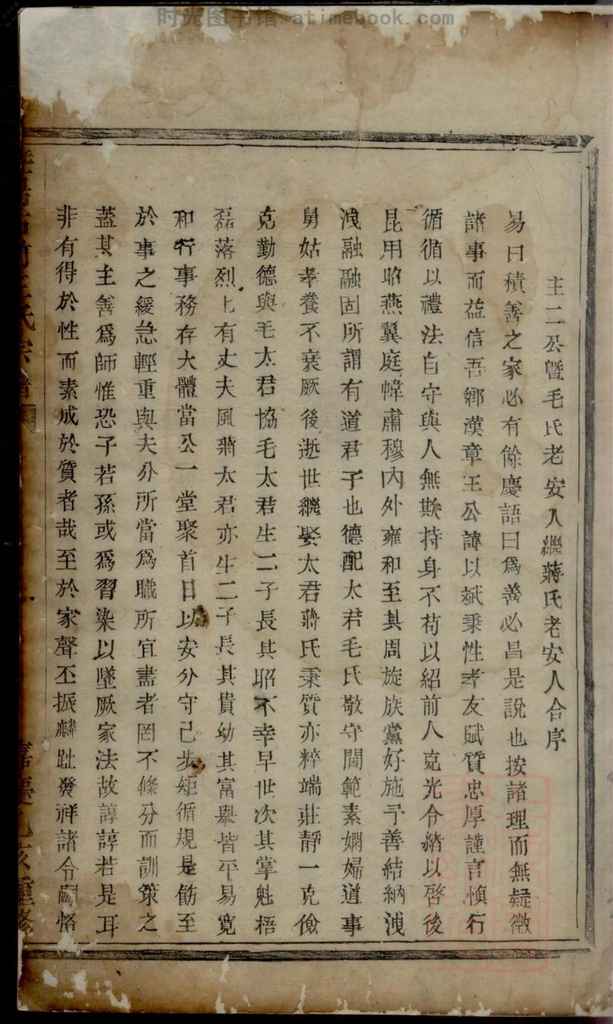 时光图书馆 atimebook.com
主二公曁毛氏老安人繼蔣氏老安人合序
易曰積善之家必有餘慶語曰爲善必昌是說也按諸理而無疑徵
諸事而益信吾鄉漢章王公諱以斌秉性孝友賦質忠厚謹言愼行
循循以禮法自守與人無欺持身不苟以紹前人克光令緒以啓後
昆用昭燕翼庭幃肅穆內外雍和至其周旋族黨好施予善結納洩
洩融融固所謂有道君子也德配太君毛氏敬守閫範素嫻婦道事
舅姑孝養不衰厥後逝世繼娶太君蔣氏秉質亦粹端莊靜一克儉
克勤德與毛太君協毛太君生二子長其昭不幸早世次其掌魁梧
磊落烈上有丈夫風蔣太君亦生二子長其貴幼其富舉皆平易寬
和行事務存大體當公一堂聚首日以安分守己步矩循規是勗至
於事之緩急輕重與夫分所當爲職所宜盡者罔不條分而訓策之
蓋其主善爲師惟恐子若孫或爲習染以墜厥家法故諄諄若是耳
非有得於性而素成於質者哉至於家聲丕振麟趾發祥諸令嗣恪
氏宗譜
重修